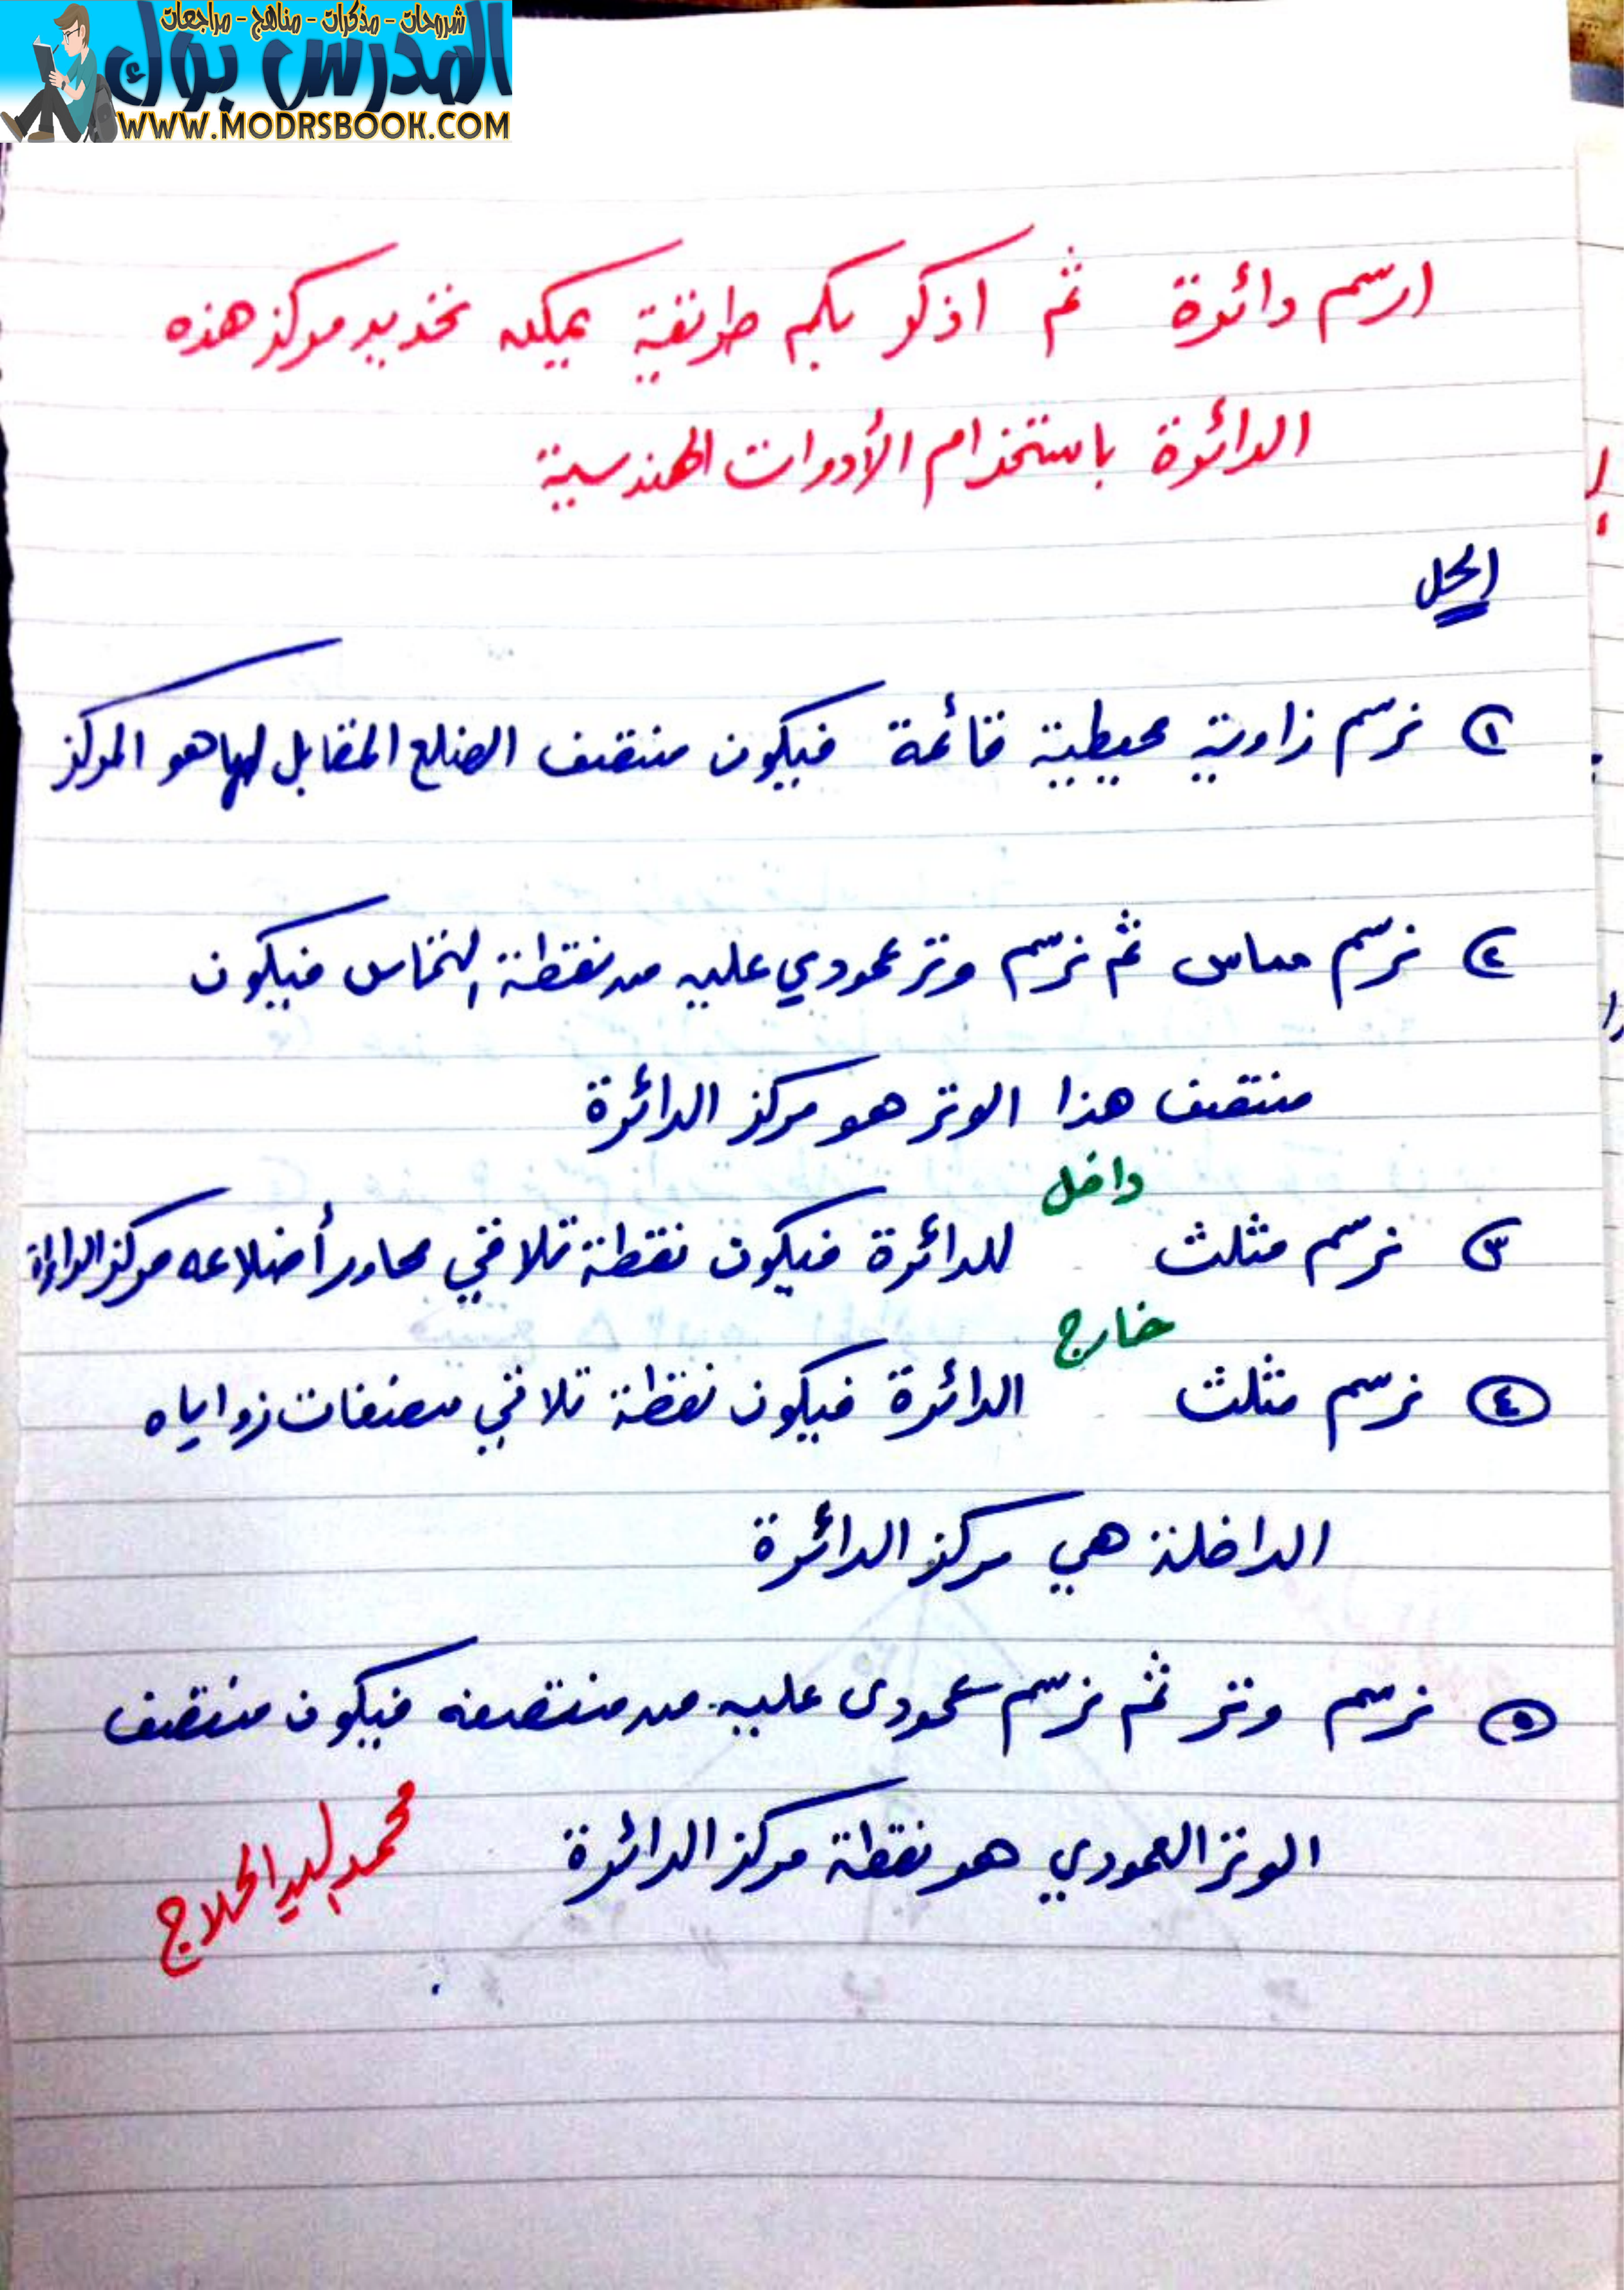 شروحات - مذكرات - مناهج - مراجعات
المدرس بوك
WWW.MODRSBOOK.COM
ارسم دائرة ثم اذكر بكم طريقة يمكن تحديد مركز هذه
الدائرة باستخدام الأدوات الهندسية
الحل
١ نرسم زاوية محيطية قائمة فيكون منتصف الضلع المقابل لها هو المركز
٢ نرسم مماس ثم نرسم وتر عمودي عليه من نقطة التماس فيكون
منتصف هذا الوتر هو مركز الدائرة
٣ نرسم مثلث داخل للدائرة فيكون نقطة تلاقي محاور أضلاعه مركز الدائرة
٤ نرسم مثلث خارج الدائرة فيكون نقطة تلاقي منصفات زواياه
الداخلة هي مركز الدائرة
٥ نرسم وتر ثم نرسم عمودى عليه من منتصفه فيكون منتصف
الوتر العمودي هو نقطة مركز الدائرة
محمد الحلاج